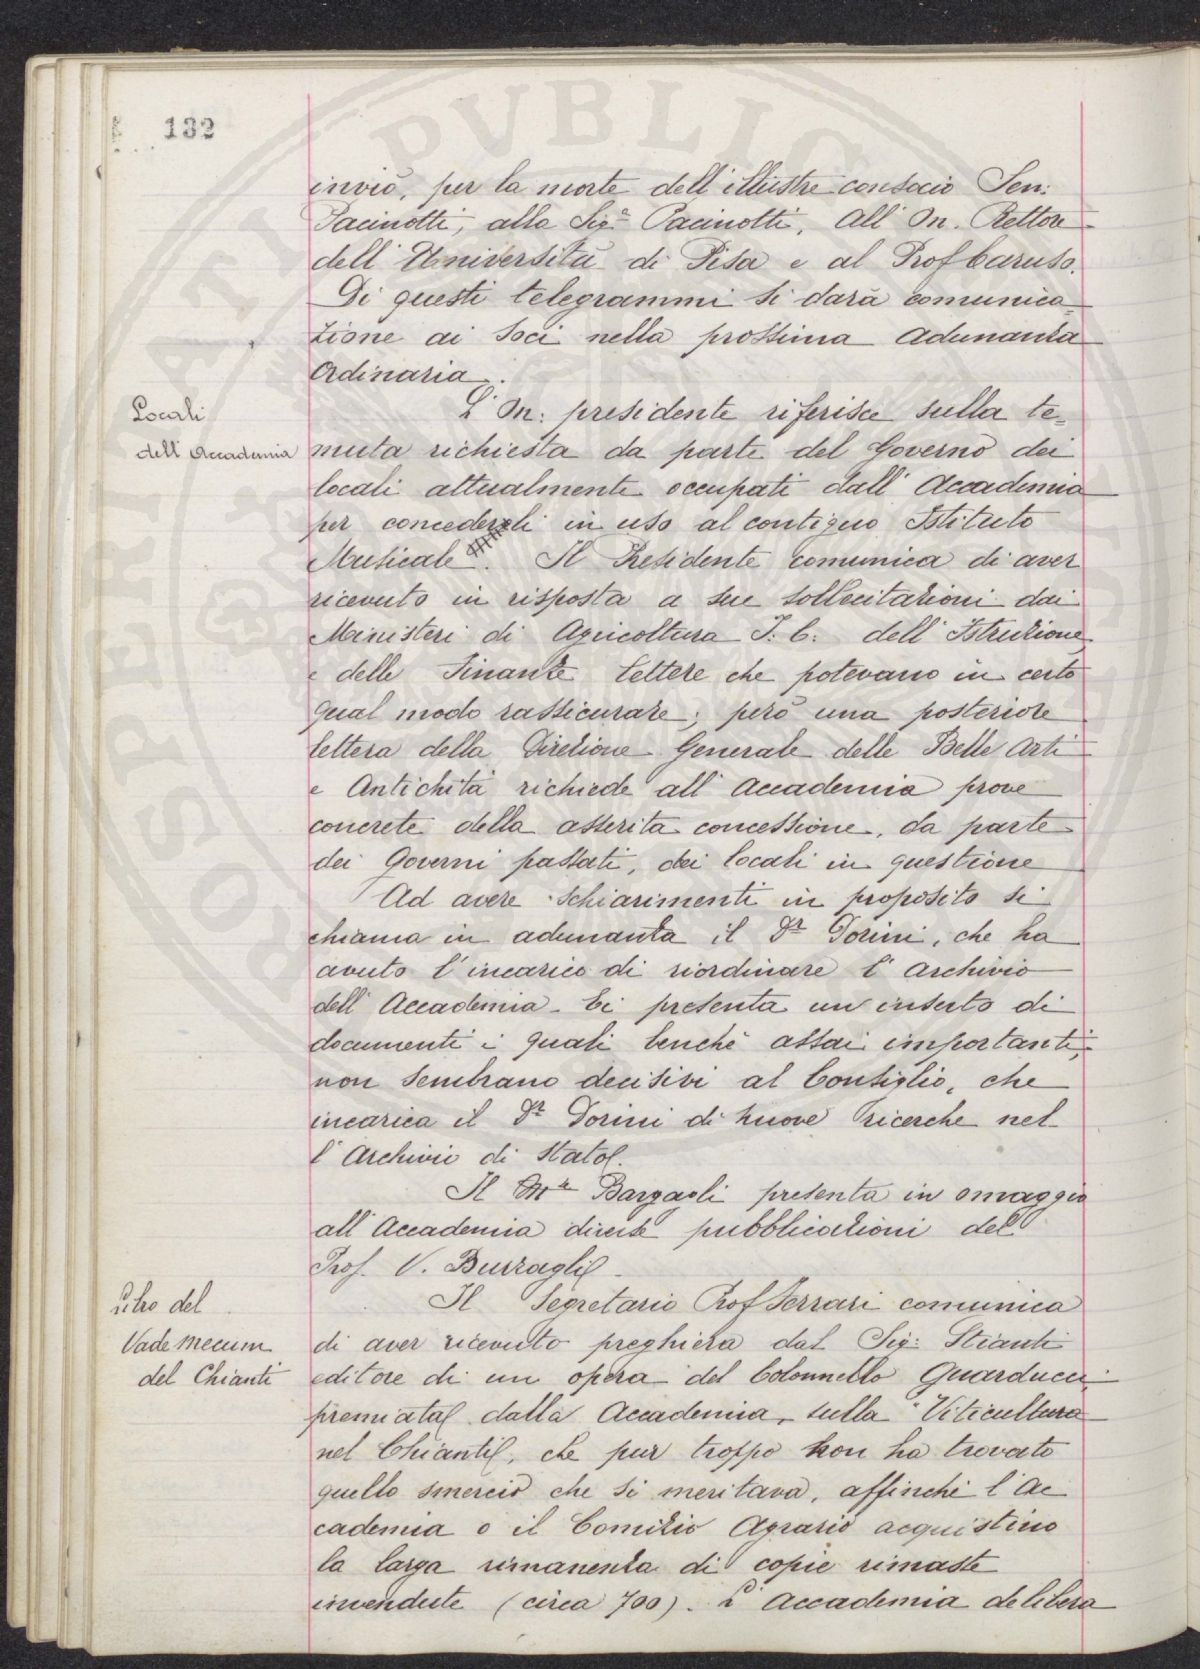 132
inviò, per la morte dell'illustre consocio Sen:
Pacinotti, alla Sigª Pacinotti, all'On. Rettore
dell'Università di Pisa e al Prof Caruso.
Di questi telegrammi si darà comunica
zione ai Soci nella prossima adunanza
ordinaria.
Locali
dell'Accademia
L'On: presidente riferisce sulla te=
muta richiesta da parte del Governo dei
locali attualmente occupati dall'Accademia
per concederli in uso al contiguo Istituto
Musicale. Il Presidente comunica di aver
ricevuto in risposta a sue sollecitazioni dai
Ministeri di Agricoltura I: C: dell'Istruzione
e delle Finanze lettere che potevano in certo
qual modo rassicurare; però una posteriore
lettera della Direzione Generale delle Belle Arti
e Antichità richiede all'Accademia prove
concrete della asserita concessione, da parte
dei Governi passati, dei locali in questione
Ad avere schiarimenti in proposito si
chiama in adunanza il Dr Dorini, che ha
avuto l'incarico di riordinare l'archivio
dell'Accademia. Ei presenta un inserto di
documenti i quali benchè assai importanti,
non sembrano decisivi al Consiglio, che
incarica il Dr Dorini di nuove ricerche nel
l'Archivio di Stato.
Il Mse Bargagli presenta in omaggio
all'Accademia diverse pubblicazioni del
Prof. V. Burragli.
Libro del
Vade mecum
del Chianti
Il Segretario Prof Ferrari comunica
di aver ricevuto preghiera dal Sig: Stianti
editore di un opera del Colonnello Guarducci
premiata dalla Accademia, sulla "Viticultura
nel Chianti", che pur troppo non ha trovato
quello smercio che si meritava, affinchè l'Ac
cademia o il Comizio Agrario acquistino
la larga rimanenza di copie rimaste
invendute (circa 700). L'Accademia delibera
PVBLIC
PROSPERITATI